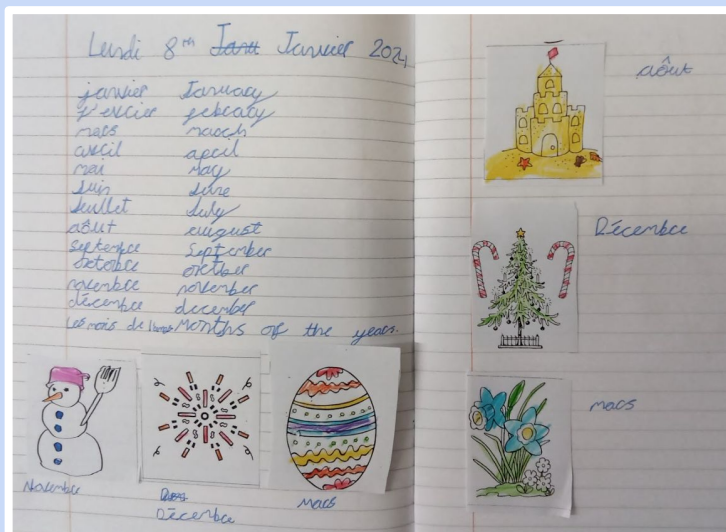 Lundi 8 Janvier 2024
janvier January
mars march
avril april
mai may
Juin June
Juillet July
août august
septembre September
octobre october
novembre november
décembre december
Les mois de months of the years.
Novembre
Décembre
Mars
août
Décembre
mars